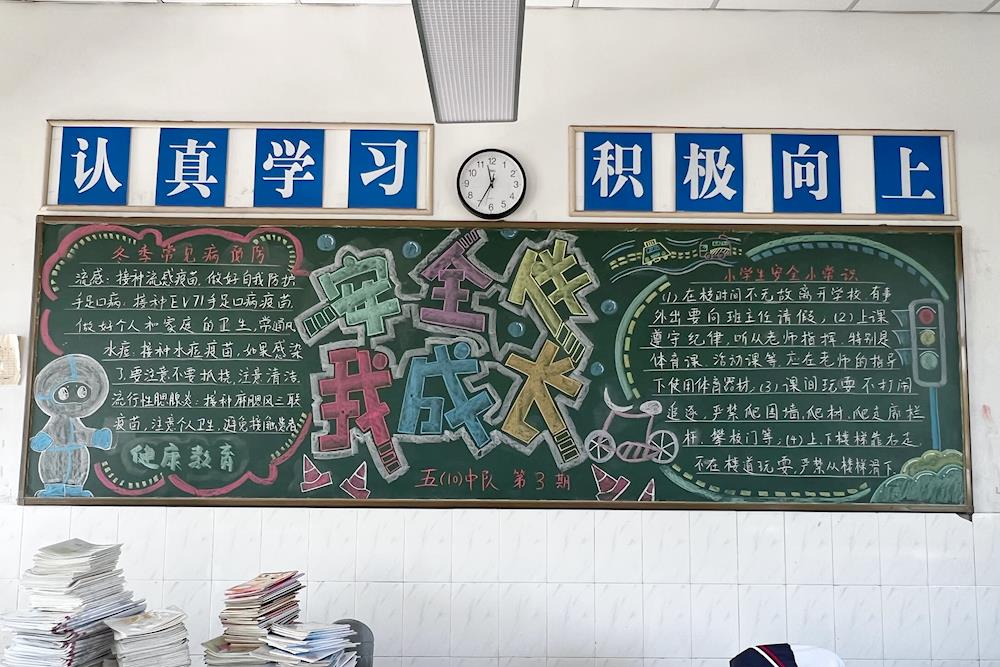 认真学习
积极向上
冬季常见病预防
流感：接种流感疫苗，做好自我防护
手足口病：接种EV71手足口病疫苗，
做好个人和家庭的卫生，常通风
水痘：接种水痘疫苗，如果感染
了要注意不要抓挠，注意清洁
流行性腮腺炎：接种麻腮风三联
疫苗，注意个人卫生，避免接触患者
健康教育
安全伴
我成长
五(10)中队 第3期
小学生安全小常识
(1)在校时间不无故离开学校，有事
外出要向班主任请假；(2)上课
遵守纪律，听从老师指挥，特别是
体育课、活动课等，应在老师的指导
下使用体育器材，(3)课间玩耍不打闹
追逐，严禁爬围墙，爬树，爬走廊栏
杆，攀校门等；(4)上、下楼梯靠右走，
不在楼道玩耍，严禁从楼梯滑下
12
1
2
3
4
5
6
7
8
9
10
11